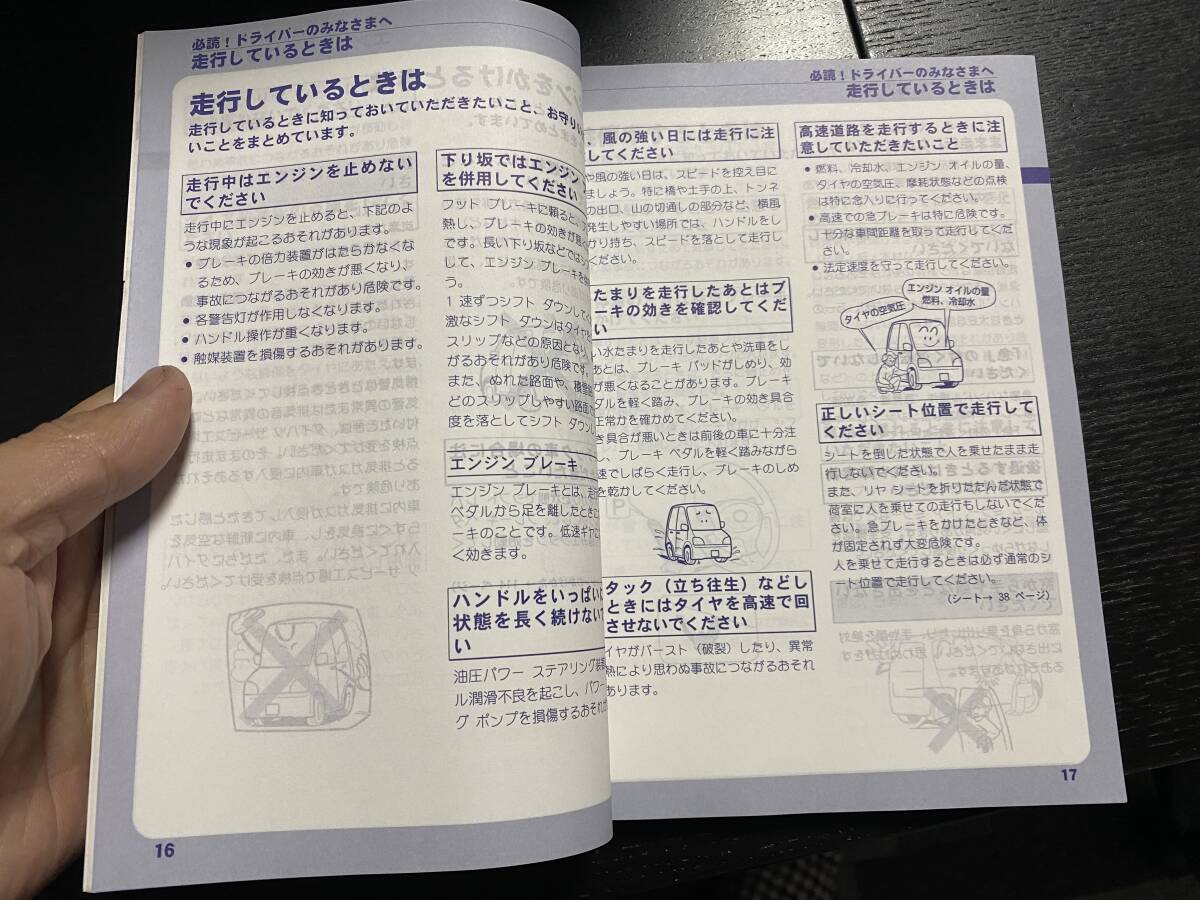 必読！ドライバーのみなさまへ
走行しているときは
走行しているときは
走行しているときに知っておいていただきたいこと、お守り
いことをまとめています。
走行中はエンジンを止めない
でください
走行中にエンジンを止めると、下記のよ
うな現象が起こるおそれがあります。
● ブレーキの倍力装置がはたらかなくな
るため、ブレーキの効きが悪くなり、
事故につながるおそれがあり危険です。
● 各警告灯が作用しなくなります。
● ハンドル操作が重くなります。
● 触媒装置を損傷するおそれがあります。
下り坂ではエンジン
を併用してください
フット ブレーキに頼ると
熱し、ブレーキの効きが悪く
です。長い下り坂などでは
して、エンジン ブレーキを
う。
1 速ずつシフト ダウンして
激なシフト ダウンはタイヤ
スリップなどの原因となり、
がるおそれがあり危険です。
また、ぬれた路面や、積雪
どのスリップしやすい路面で
度を落としてシフト ダウン
エンジン ブレーキ
エンジン ブレーキとは、走行
ペダルから足を離したときに
ーキのことです。低速ギヤに
く効きます。
ハンドルをいっぱいに
状態を長く続けない
い
油圧パワー ステアリング装
ル潤滑不良を起こし、パワー
グ ポンプを損傷するおそれが
16
必読！ドライバーのみなさまへ
走行しているときは
、風の強い日には走行に注
してください
や風の強い日は、スピードを控え目に
ましょう。特に橋や土手の上、トンネ
の出口、山の切通しの部分など、横風
発生しやすい場所では、ハンドルをし
かり持ち、スピードを落として走行し
ください。
たまりを走行したあとはブ
ーキの効きを確認してくだ
い
い水たまりを走行したあとや洗車をし
あとは、ブレーキ パッドがしめり、効
が悪くなることがあります。ブレーキ
ダルを軽く踏み、ブレーキの効き具合
正常かを確かめてください。
き具合が悪いときは前後の車に十分注
し、ブレーキ ペダルを軽く踏みながら
速でしばらく走行し、ブレーキのしめ
を乾かしてください。
タック（立ち往生）などし
ときにはタイヤを高速で回
させないでください
イヤがバースト（破裂）したり、異常
熱により思わぬ事故につながるおそれ
あります。
高速道路を走行するときに注
意していただきたいこと
● 燃料、冷却水、エンジン オイルの量、
タイヤの空気圧、摩耗状態などの点検
は特に念入りに行ってください。
● 高速での急ブレーキは特に危険です。
十分な車間距離を取って走行してくだ
さい。
● 法定速度を守って走行してください。
エンジン オイルの量
燃料、冷却水
タイヤの空気圧
正しいシート位置で走行して
ください
シートを倒した状態で人を乗せたまま走
行しないでください。
また、リヤ シートを折りたたんだ状態で
荷室に人を乗せての走行もしないでくだ
さい。急ブレーキをかけたときなど、体
が固定されず大変危険です。
人を乗せて走行するときは必ず通常のシ
ート位置で走行してください。
（シート→ 38 ページ）
17